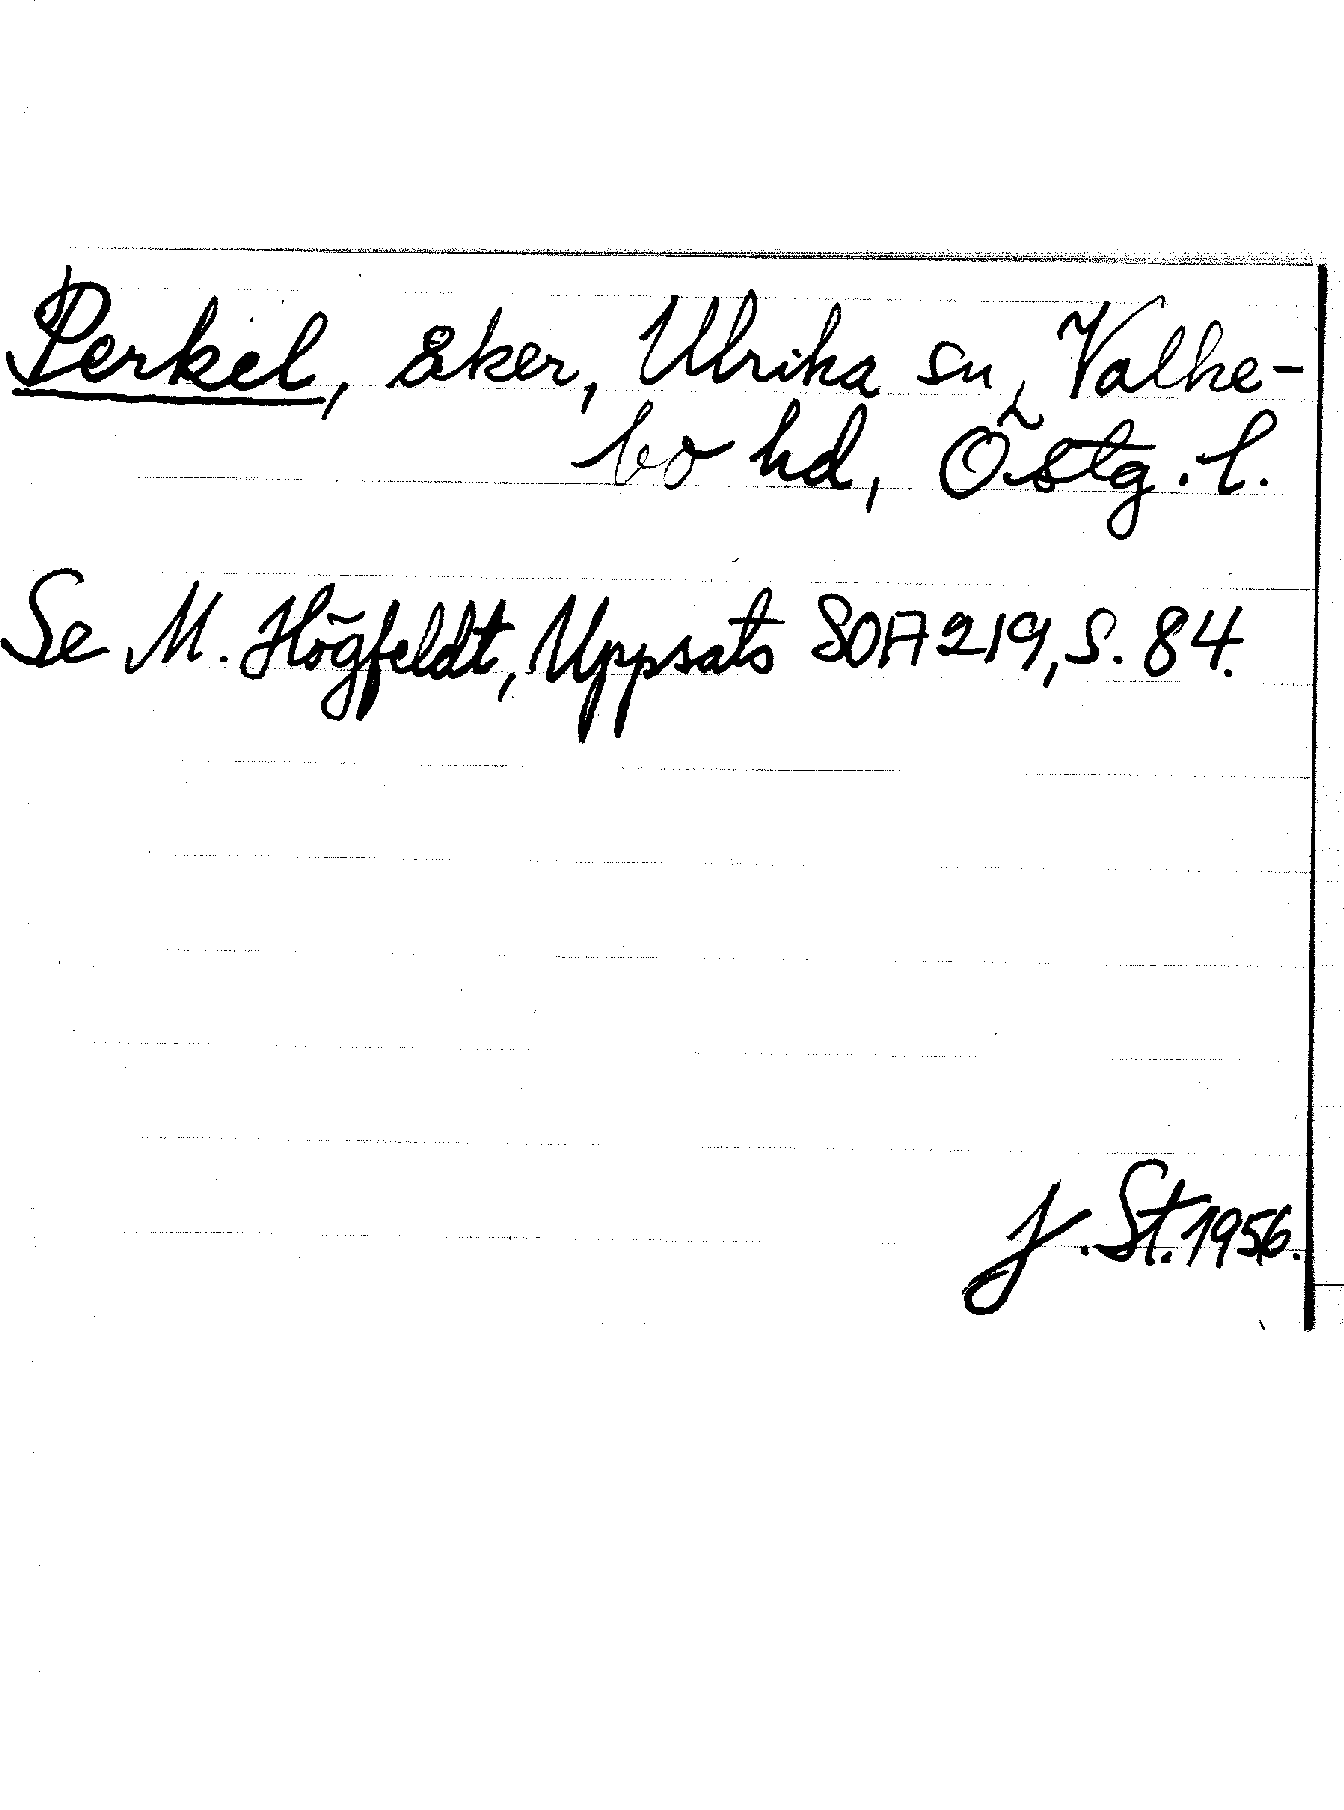 Perkel, åker, Ulrika sn, Valke-
bo hd, Östg. l.
Se M. Högfeldt, Uppsats SOA 219, s. 84.
J. St. 1956.